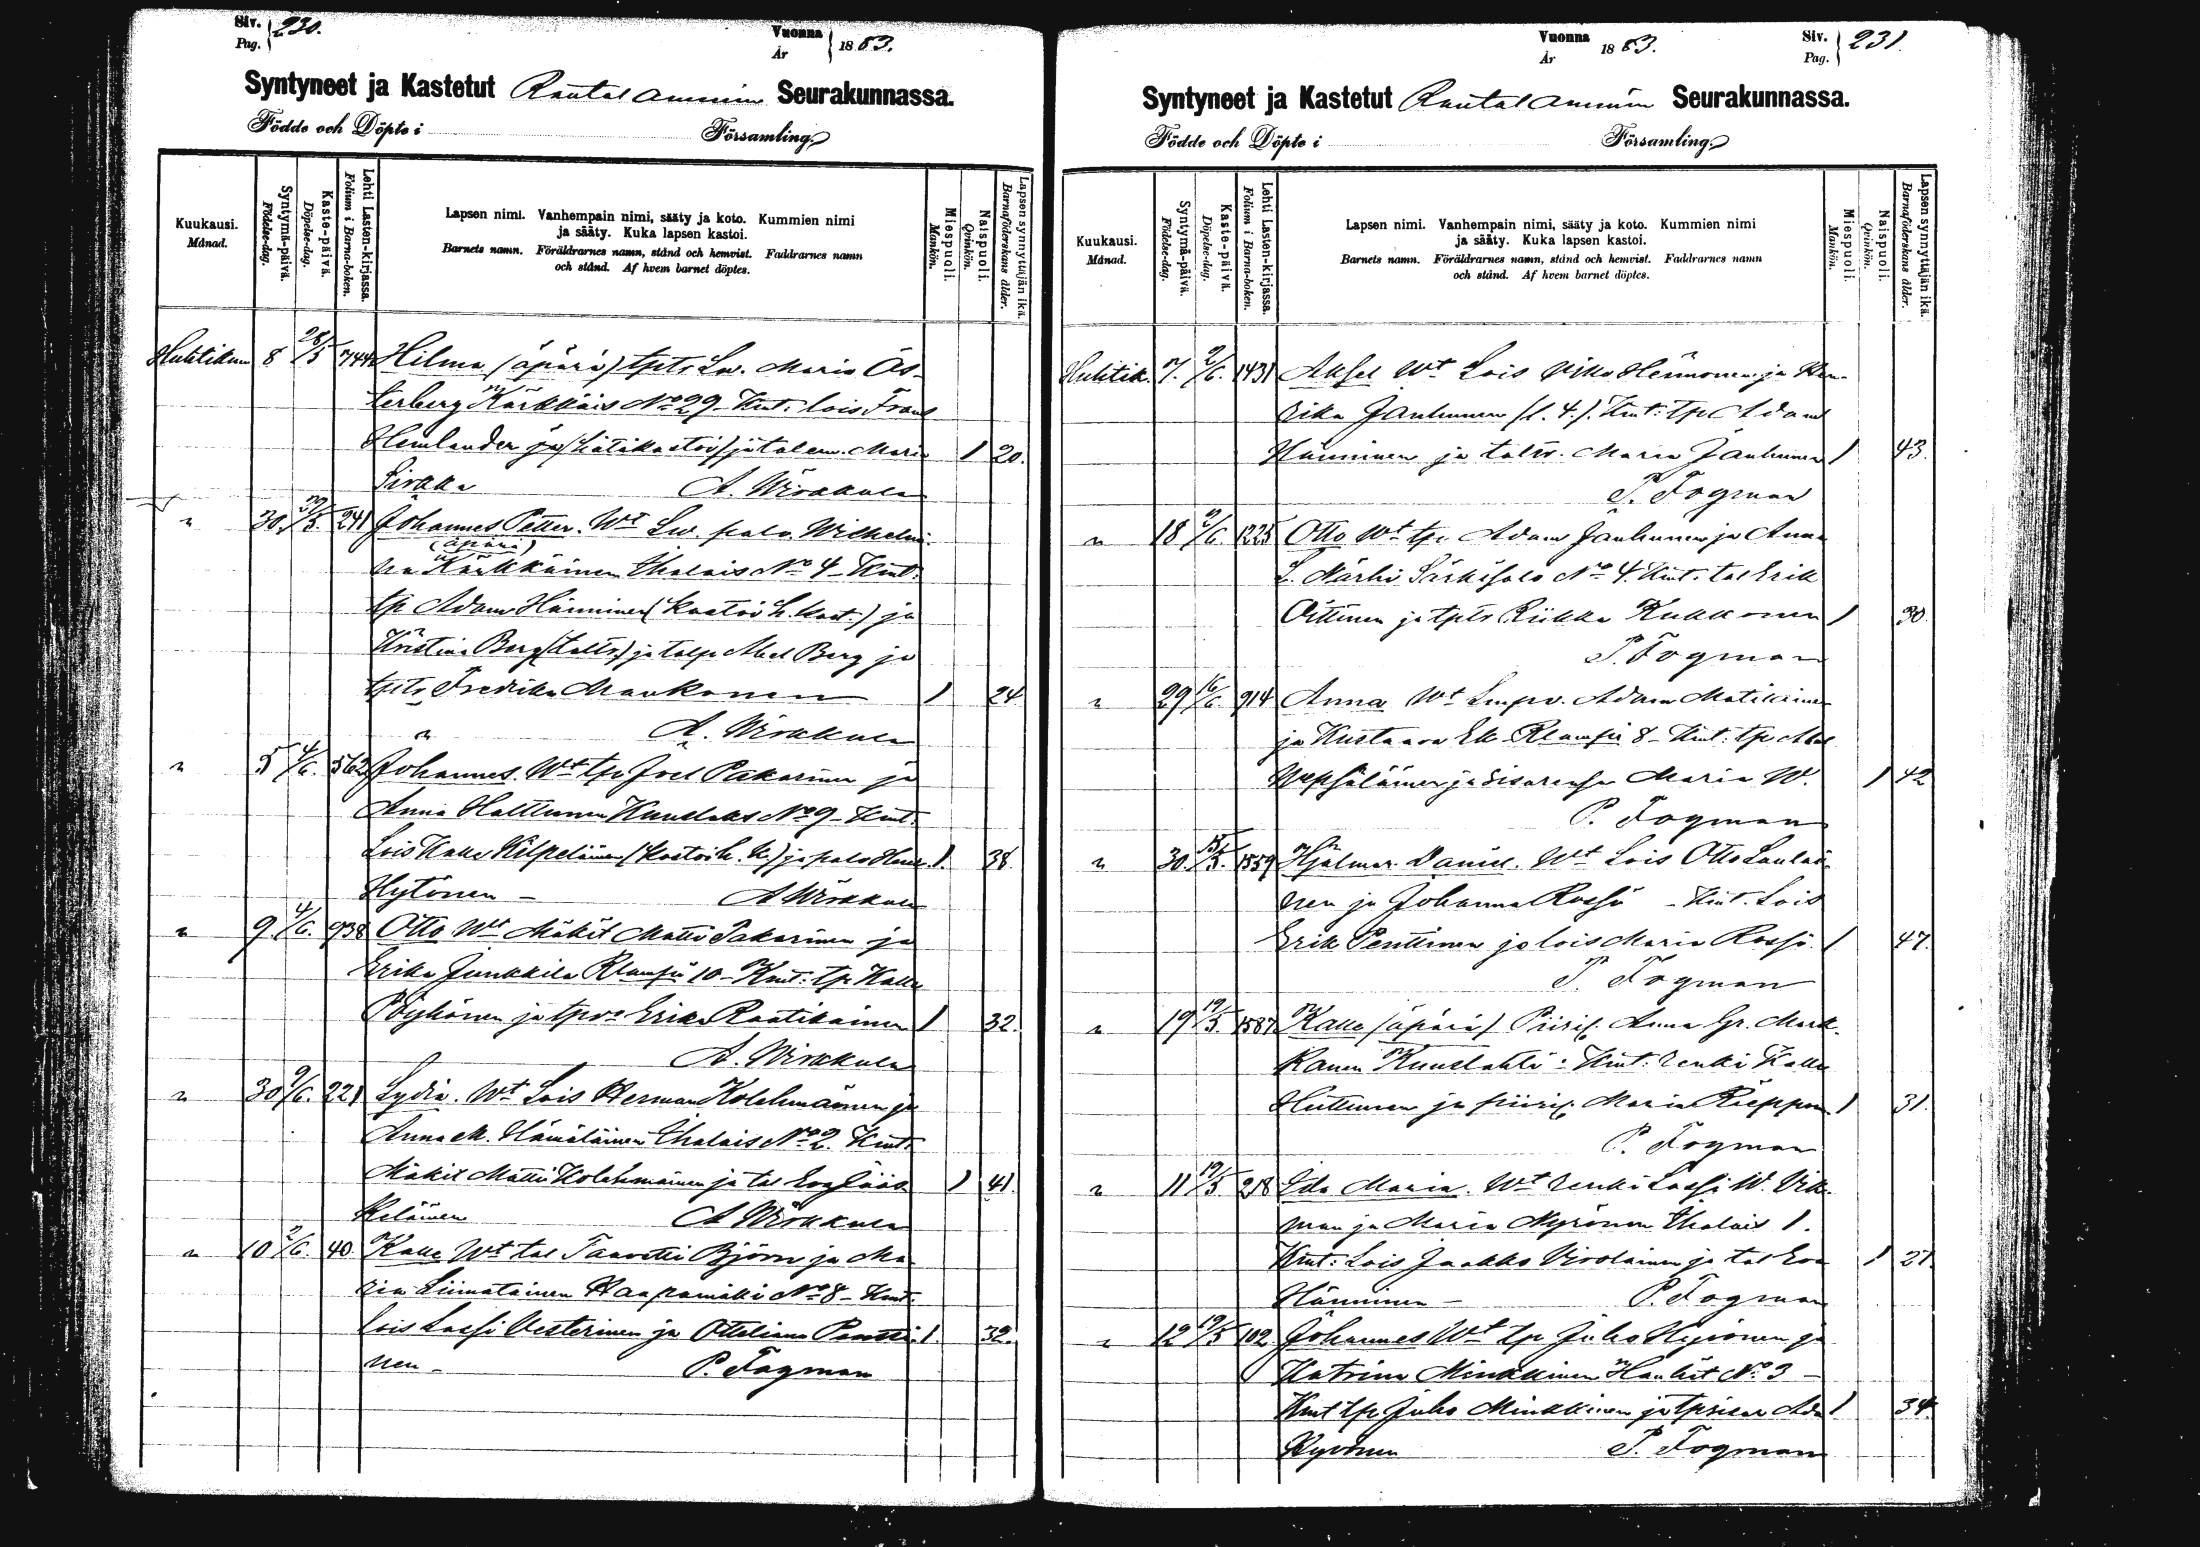 Siv. Pag. 230.
Vuonna År 1883.
Syntyneet ja Kastetut Rautalammin Seurakunnassa.
Födde och Döpte i Församling
Kuukausi. Månad.
Syntymä-päivä. Födelse-dag.
Kaste-päivä. Döpelse-dag.
Lehti Lasten-kirjassa. Folium i Barna-boken.
Lapsen nimi. Vanhempain nimi, sääty ja koto. Kummien nimi
ja sääty. Kuka lapsen kastoi.
Barnets namn. Föräldrarnes namn, stånd och hemvist. Faddrarnes namn
och stånd. Af hvem barnet döptes.
Miespuoli. Mankön.
Naispuoli. Qvinkön.
Lapsen synnyttäjän ikä. Barnaföderskans ålder.
Huhtikuu 8 28/5 744 Hilma (äpärä) tptr Lw. Maria Ös-
terberg Kärkkäis No 29 - Kmt: lois Frans
Hemlander (hätäkastoi) ja talem. Maria 1 20.
Sirkka A. Wirkkula
" 30. 30/5. 241 Johannes Petter. Wt Lw. palv. Wilhelmi-
(äpärä)
na Kärkkäinen Ihalais No 4 - Kmt:
tp Adam Hänninen (kastoi h. kast.) ja
Kristina Berg (taltr) ja talp Abel Berg ja
tptr Fredrika Maukonen 1 24
" A. Wirkkula
" 5 4/6. 562 Johannes. Wt tp Joel Pakarinen ja
Anna Halttunen Kuuslaks No 9 - Kmt:
Lois Kalle Kilpeläinen (kastoi h. k.) ja palv 1. 38
Hytönen - A Wirkkula
" 9 4/6. 938 Otto Wt Mäkit Matti Pakarinen ja
Erika Junkkila Rlampi 10 - Kmt: tp Kalle
Pöyhönen ja Erika Raatikainen 1 32.
A. Wirkkula
" 30 9/6. 221 Lydia. Wt Lois Herman Kolehmainen ja
Anna M. Hämäläinen Ihalais No 2. Kmt:
Mäkit Matti Kolehmainen ja tal Eva Jääs- 1 41.
keläinen A Wirkkula
" 10 2/6. 40. Kalle Wt tal Taavetti Björn ja Ma-
ria Liimatainen Haapamäki No 8 - Kmt:
lois Lassi Vesterinen ja Ottiliana Pentti- 1. 32.
nen - P. Fogman
Vuonna År 1883.
Siv. Pag. 231
Syntyneet ja Kastetut Rautalammin Seurakunnassa.
Födde och Döpte i Församling
Kuukausi. Månad.
Syntymä-päivä. Födelse-dag.
Kaste-päivä. Döpelse-dag.
Lehti Lasten-kirjassa. Folium i Barna-boken.
Lapsen nimi. Vanhempain nimi, sääty ja koto. Kummien nimi
ja sääty. Kuka lapsen kastoi.
Barnets namn. Föräldrarnes namn, stånd och hemvist. Faddrarnes namn
och stånd. Af hvem barnet döptes.
Miespuoli. Mankön.
Naispuoli. Qvinkön.
Lapsen synnyttäjän ikä. Barnaföderskans ålder.
Huhtik. 7. 2/6. 1431 Aksel Wt Lois Hännonen ja Hen-
rika Janhunen (l. 4.). Kmt: tp Adam
Hänninen ja taltr. Maria Janhunen 1 43.
P. Fogman
" 18 /6. 1225 Otto Wt tp Adam Janhunen ja Anna
L. Närhi Särkisalo No 4. Kmt. tal Erik
Oittinen ja tptr Riikka Kukkonen 1 30
P. Fogman
" 29 16/6. 914 Anna Wt Adam Matikainen
ja Kustaava Ek Rlampi 8 - Kmt: tp Abel
Wepsäläinen ja sisarensa Maria W. 1 42
P. Fogman
" 30. 15/5. 1559 Hjalmar Daniel. Wt Lois Otto Laulai-
nen ja Johanna Rossi - Kmt. Lois
Erik Penttinen ja lois Maria Rossi. 1 47.
P. Fogman
" 19 19/5. 1587 Kalle (äpärä) Piirip. Anna Gr. Mark-
kanen Kuuslahti : Kmt: renki Kalle
Huttunen ja piirip. Maria Räppänen 1 31.
P. Fogman
" 11 19/5. 218 Ida Maria. Wt renki Lassi W. Vik-
man ja Maria Nyrönen Ihalais 1.
Kmt: Lois Jaakko Virolainen ja tal Eva 1 27.
Hänninen - P. Fogman
" 12 19/5 102. Johannes Wt tp Juho Hyvönen ja
Katrina Minkkinen Hankit No 3 -
Kmt tp Juho Minkkinen ja tpsisar Ada 1 34.
Hyvönen P. Fogman